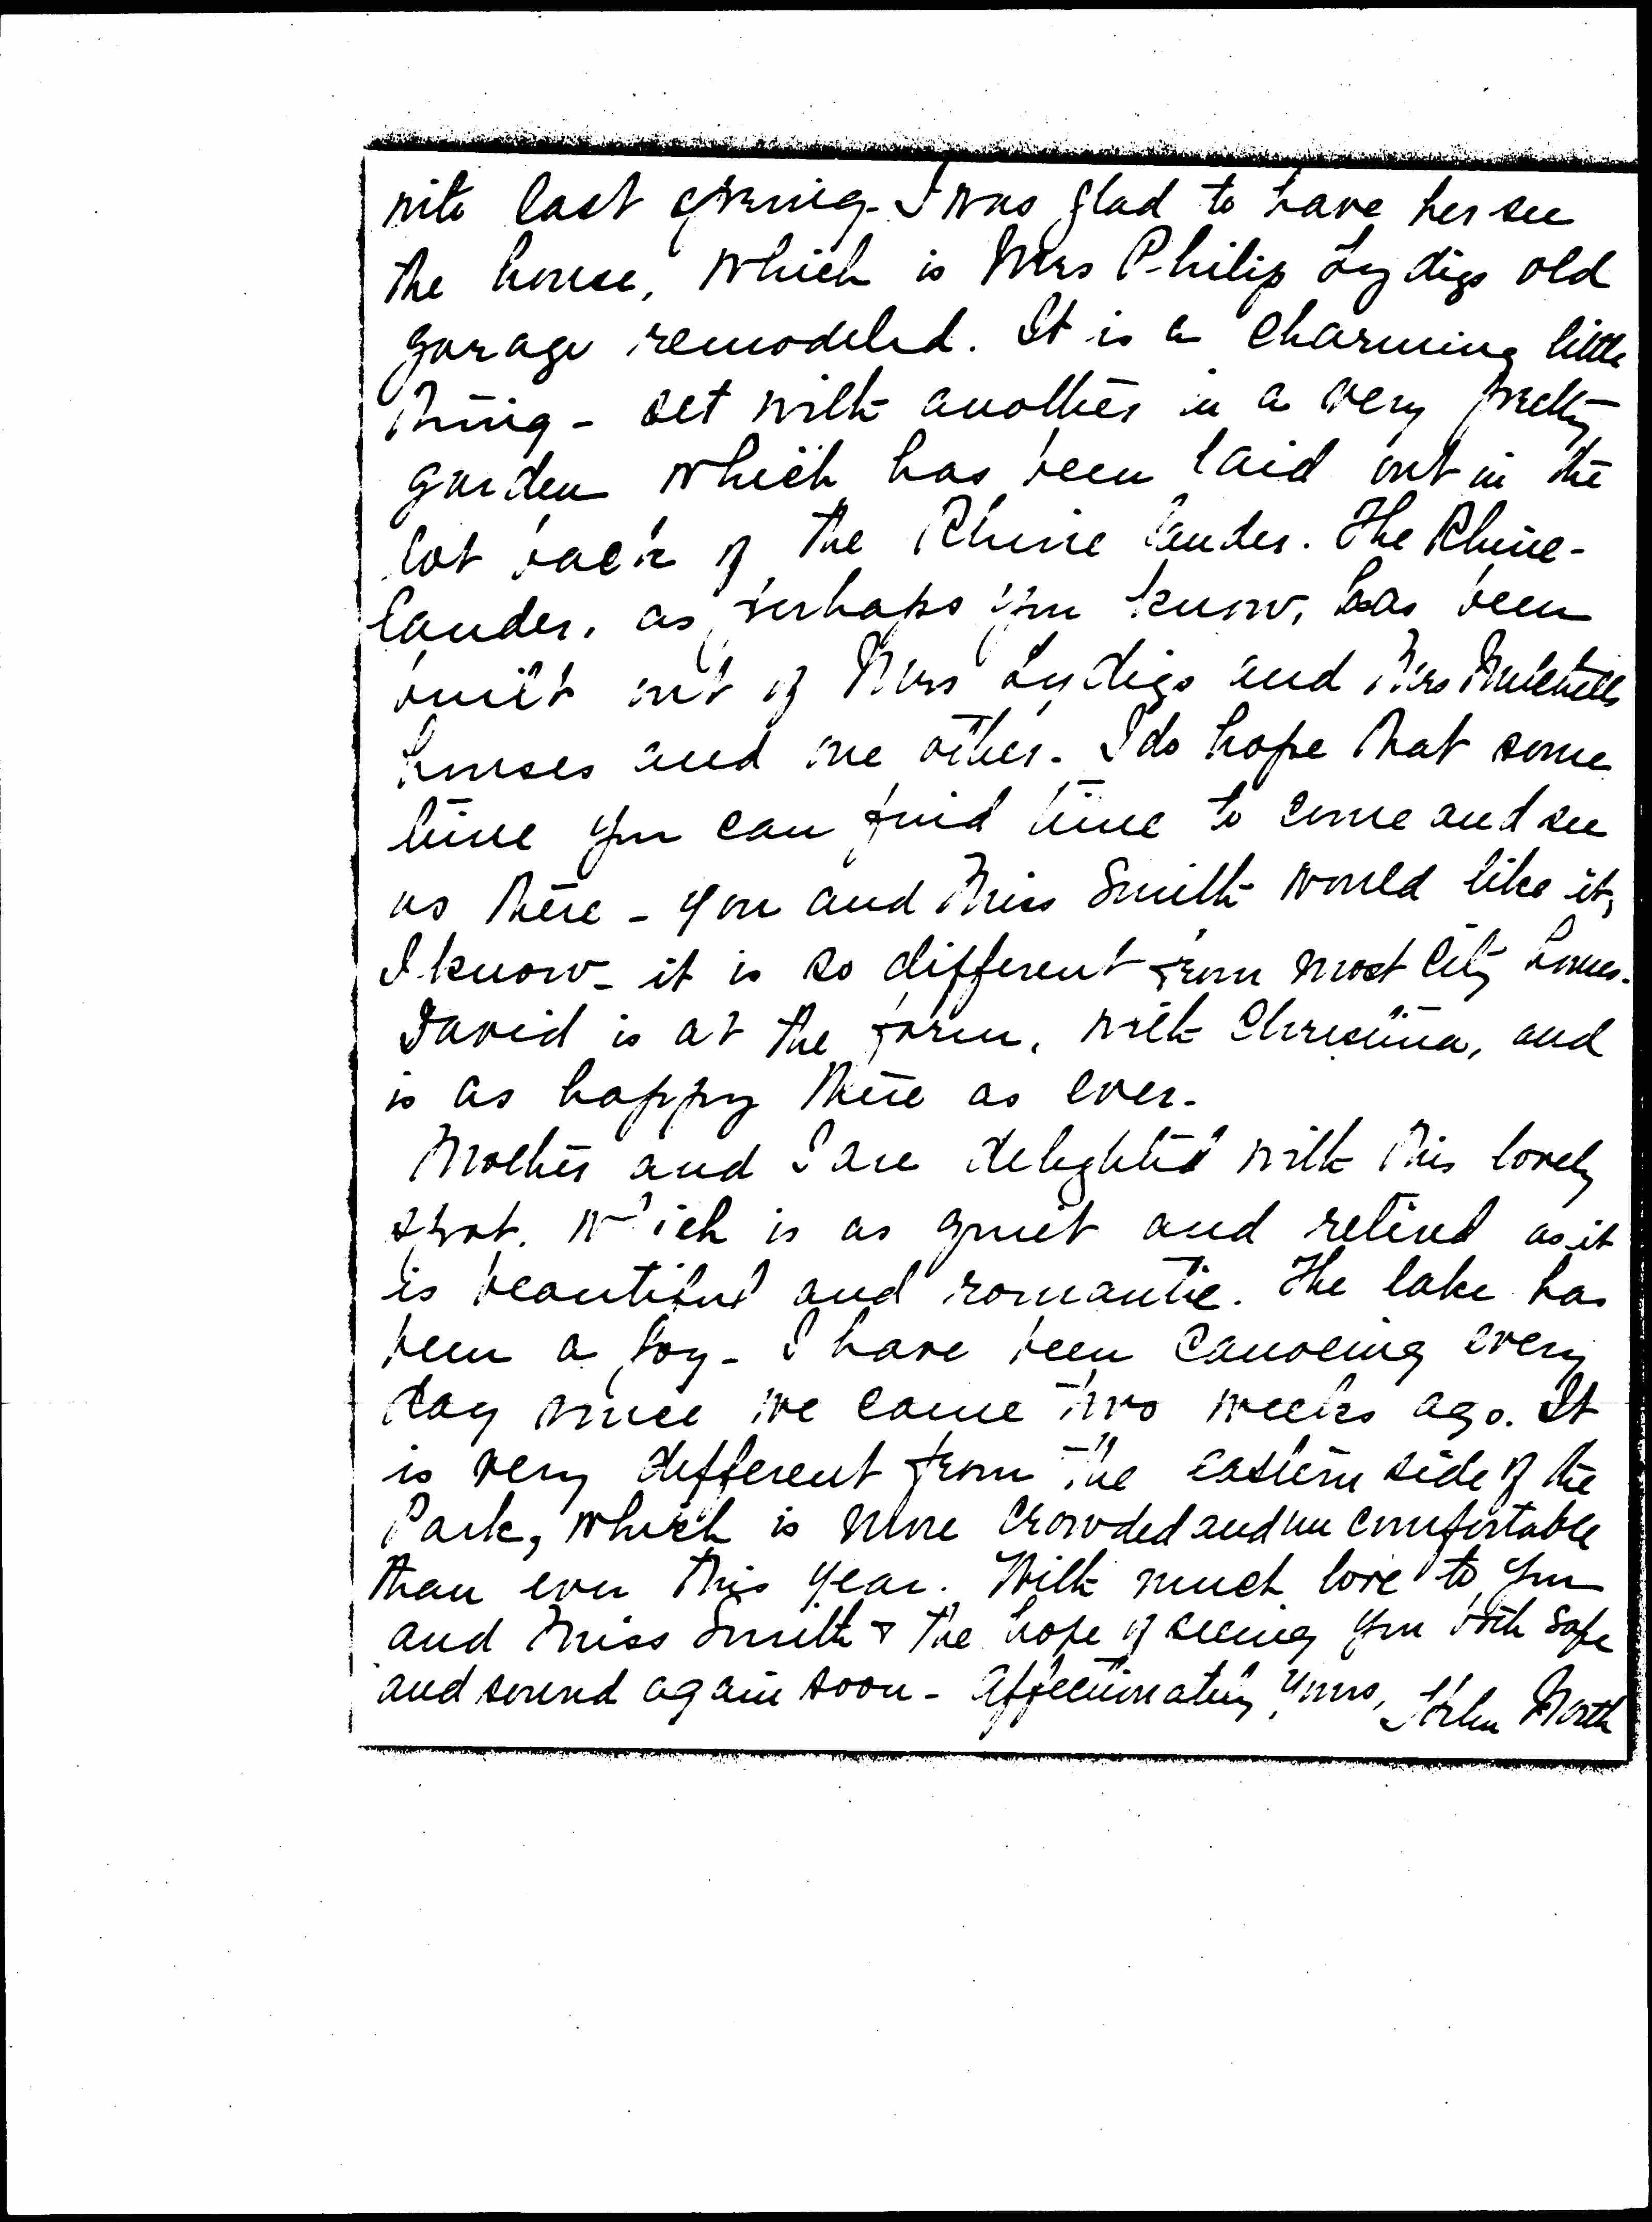 into last spring. I was glad to have her see
the house, which is Mrs Philip Lydigs old
garage remodeled. It is a charming little
thing - set with another in a very pretty
garden which has been laid out in the
lot back of the Rhine lander. The Rhine-
lander, as perhaps you know, has been
built out of Mrs Lydigs and Mrs Mitchells
houses and one other. I do hope that some
time you can find time to come and see
us there - you and Miss Smith would like it,
I know - it is so different from most city homes.
David is at the farm, with Christina, and
is as happy there as ever.
Mother and I are delighted with this lovely
spot. which is as quiet and retired as it
is beautiful and romantic. The lake has
been a joy - I have been canoeing every
day since we came two weeks ago. It
is very different from the eastern side of the
Park, which is more crowded and un comfortable
than ever this year. With much love to you
and Miss Smith & the hope of seeing you both safe
and sound again soon - affectionately yours, Helen North